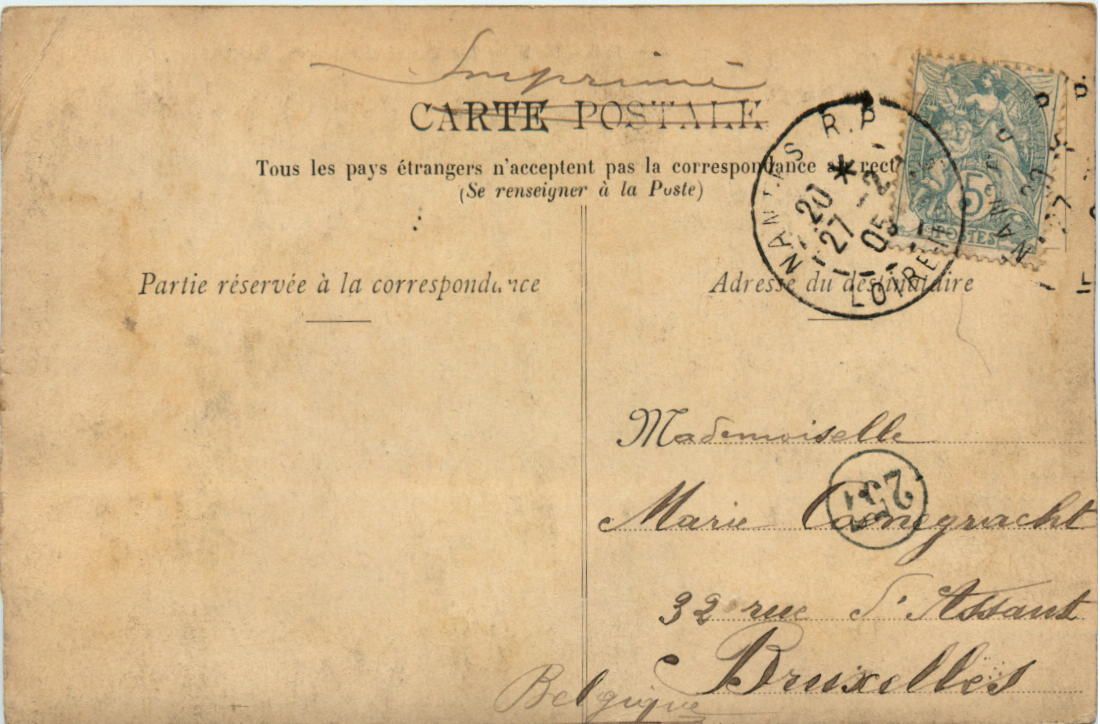 Imprimé
CARTE POSTALE
Tous les pays étrangers n'acceptent pas la correspondance au recto
(Se renseigner à la Poste)
Partie réservée à la correspondance
Adresse du destinataire
NANTES R.P
20 * 27 -2 05
LOIRE
5c
POSTES
Mademoiselle
231
Marie
32 rue d'Assaut
Bruxelles
Belgique